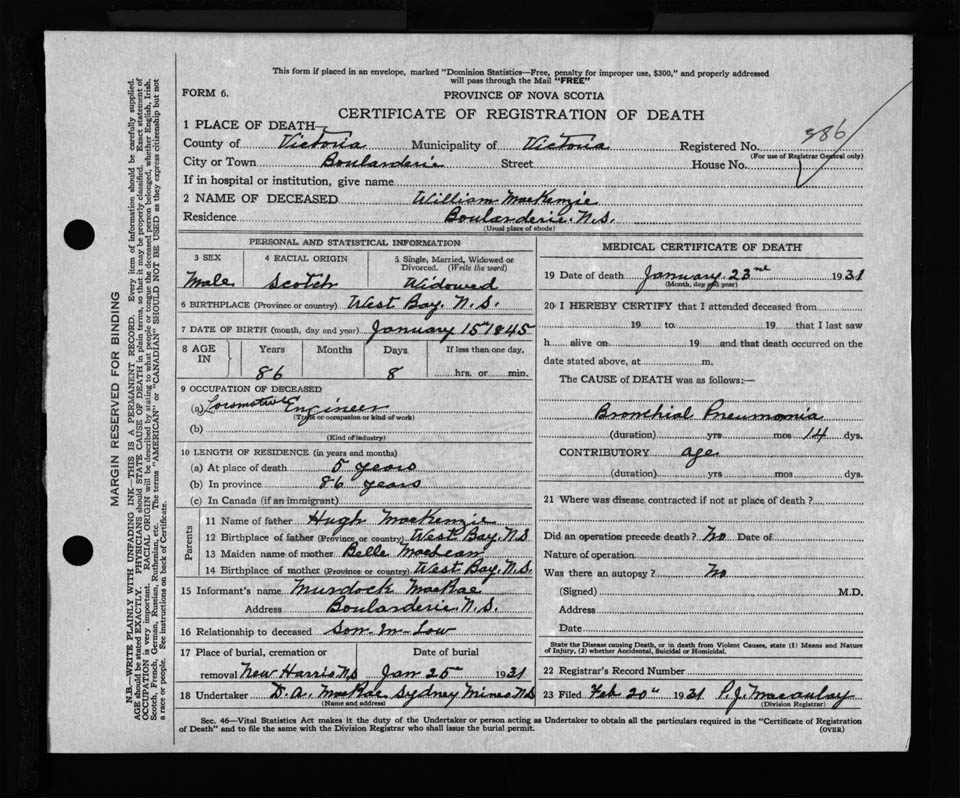 This form if placed in an envelope, marked "Dominion Statistics—Free, penalty for improper use, $300," and properly addressed
will pass through the Mail "FREE"
FORM 6.
PROVINCE OF NOVA SCOTIA
CERTIFICATE OF REGISTRATION OF DEATH
986
1 PLACE OF DEATH—
County of Victoria Municipality of Victoria Registered No.
(For use of Registrar General only)
City or Town Boulanderie Street House No.
If in hospital or institution, give name
2 NAME OF DECEASED William MacKenzie
Residence Boulanderie, N.S.
(Usual place of abode)
PERSONAL AND STATISTICAL INFORMATION
3 SEX 4 RACIAL ORIGIN 5 Single, Married, Widowed or
Divorced. (Write the word)
Male Scotch Widowed
6 BIRTHPLACE (Province or country) West Bay, N.S.
7 DATE OF BIRTH (month, day and year) January 15 1845
8 AGE IN Years Months Days If less than one day,
86 8 hrs. or min.
9 OCCUPATION OF DECEASED
(a) Locomotive Engineer
(Trade or occupation or kind of work)
(b)
(Kind of industry)
10 LENGTH OF RESIDENCE (in years and months)
(a) At place of death 5 years
(b) In province 86 years
(c) In Canada (if an immigrant)
Parents
11 Name of father Hugh MacKenzie
12 Birthplace of father (Province or country) West Bay, N.S.
13 Maiden name of mother Belle MacLean
14 Birthplace of mother (Province or country) West Bay, N.S.
15 Informant's name Murdock MacRae
Address Boulanderie, N.S.
16 Relationship to deceased Son-In-Law
17 Place of burial, cremation or Date of burial
removal New Harris N.S Jan 25 1931
18 Undertaker D. A. MacRae Sydney Mines N.S
(Name and address)
MEDICAL CERTIFICATE OF DEATH
19 Date of death January 23rd 1931
(Month, day and year)
20 I HEREBY CERTIFY that I attended deceased from
19 to 19 that I last saw
h alive on 19 and that death occurred on the
date stated above, at m.
The CAUSE of DEATH was as follows:—
Bronchial Pneumonia
(duration) yrs mos 14 dys.
CONTRIBUTORY age
(duration) yrs mos dys.
21 Where was disease contracted if not at place of death?
Did an operation precede death? No Date of
Nature of operation
Was there an autopsy? No
(Signed) M.D.
Address
Date
State the Disease causing Death, or in death from Violent Causes, state (1) Means and Nature
of Injury, (2) whether Accidental, Suicidal or Homicidal.
22 Registrar's Record Number
23 Filed Feb 20" 1931 P. J. Macaulay
(Division Registrar)
Sec. 46—Vital Statistics Act makes it the duty of the Undertaker or person acting as Undertaker to obtain all the particulars required in the "Certificate of Registration
of Death" and to file the same with the Division Registrar who shall issue the burial permit.
(OVER)
MARGIN RESERVED FOR BINDING
N.B.—WRITE PLAINLY WITH UNFADING INK—THIS IS A PERMANENT RECORD. Every item of information should be carefully supplied.
AGE should be stated EXACTLY. PHYSICIANS should STATE CAUSE OF DEATH in plain terms, so that it may be properly classified. Exact statement of
OCCUPATION is very important. RACIAL ORIGIN will be described by stating to what people or tongue the deceased person belonged, whether English, Irish,
Scotch, French, German, Russian, Ruthenian, etc. The terms "AMERICAN" or "CANADIAN" SHOULD NOT BE USED as they express citizenship but not
a race or people. See instructions on back of Certificate.